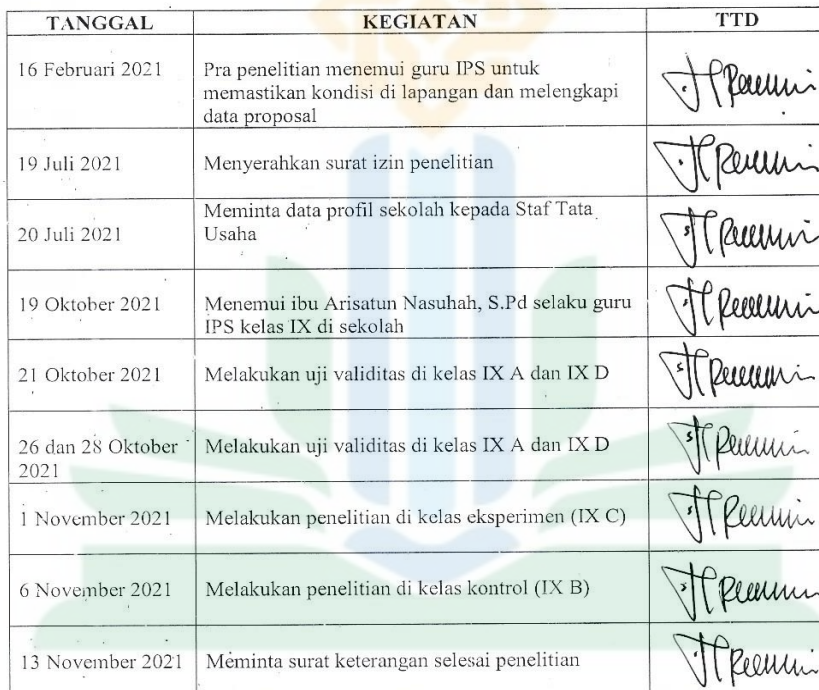 TANGGAL KEGIATAN TTD
16 Februari 2021 Pra penelitian menemui guru IPS untuk
memastikan kondisi di lapangan dan melengkapi
data proposal
19 Juli 2021 Menyerahkan surat izin penelitian
20 Juli 2021 Meminta data profil sekolah kepada Staf Tata
Usaha
19 Oktober 2021 Menemui ibu Arisatun Nasuhah, S.Pd selaku guru
IPS kelas IX di sekolah
21 Oktober 2021 Melakukan uji validitas di kelas IX A dan IX D
26 dan 28 Oktober Melakukan uji validitas di kelas IX A dan IX D
2021
1 November 2021 Melakukan penelitian di kelas eksperimen (IX C)
6 November 2021 Melakukan penelitian di kelas kontrol (IX B)
13 November 2021 Meminta surat keterangan selesai penelitian